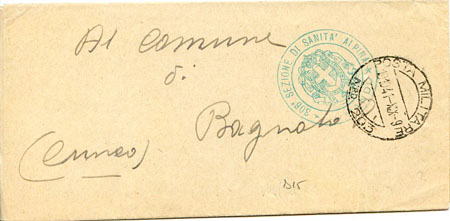 Al Comune
di
Bagnolo
(Cuneo)
306ª SEZIONE DI SANITA' ALPINA
POSTA MILITARE
D15